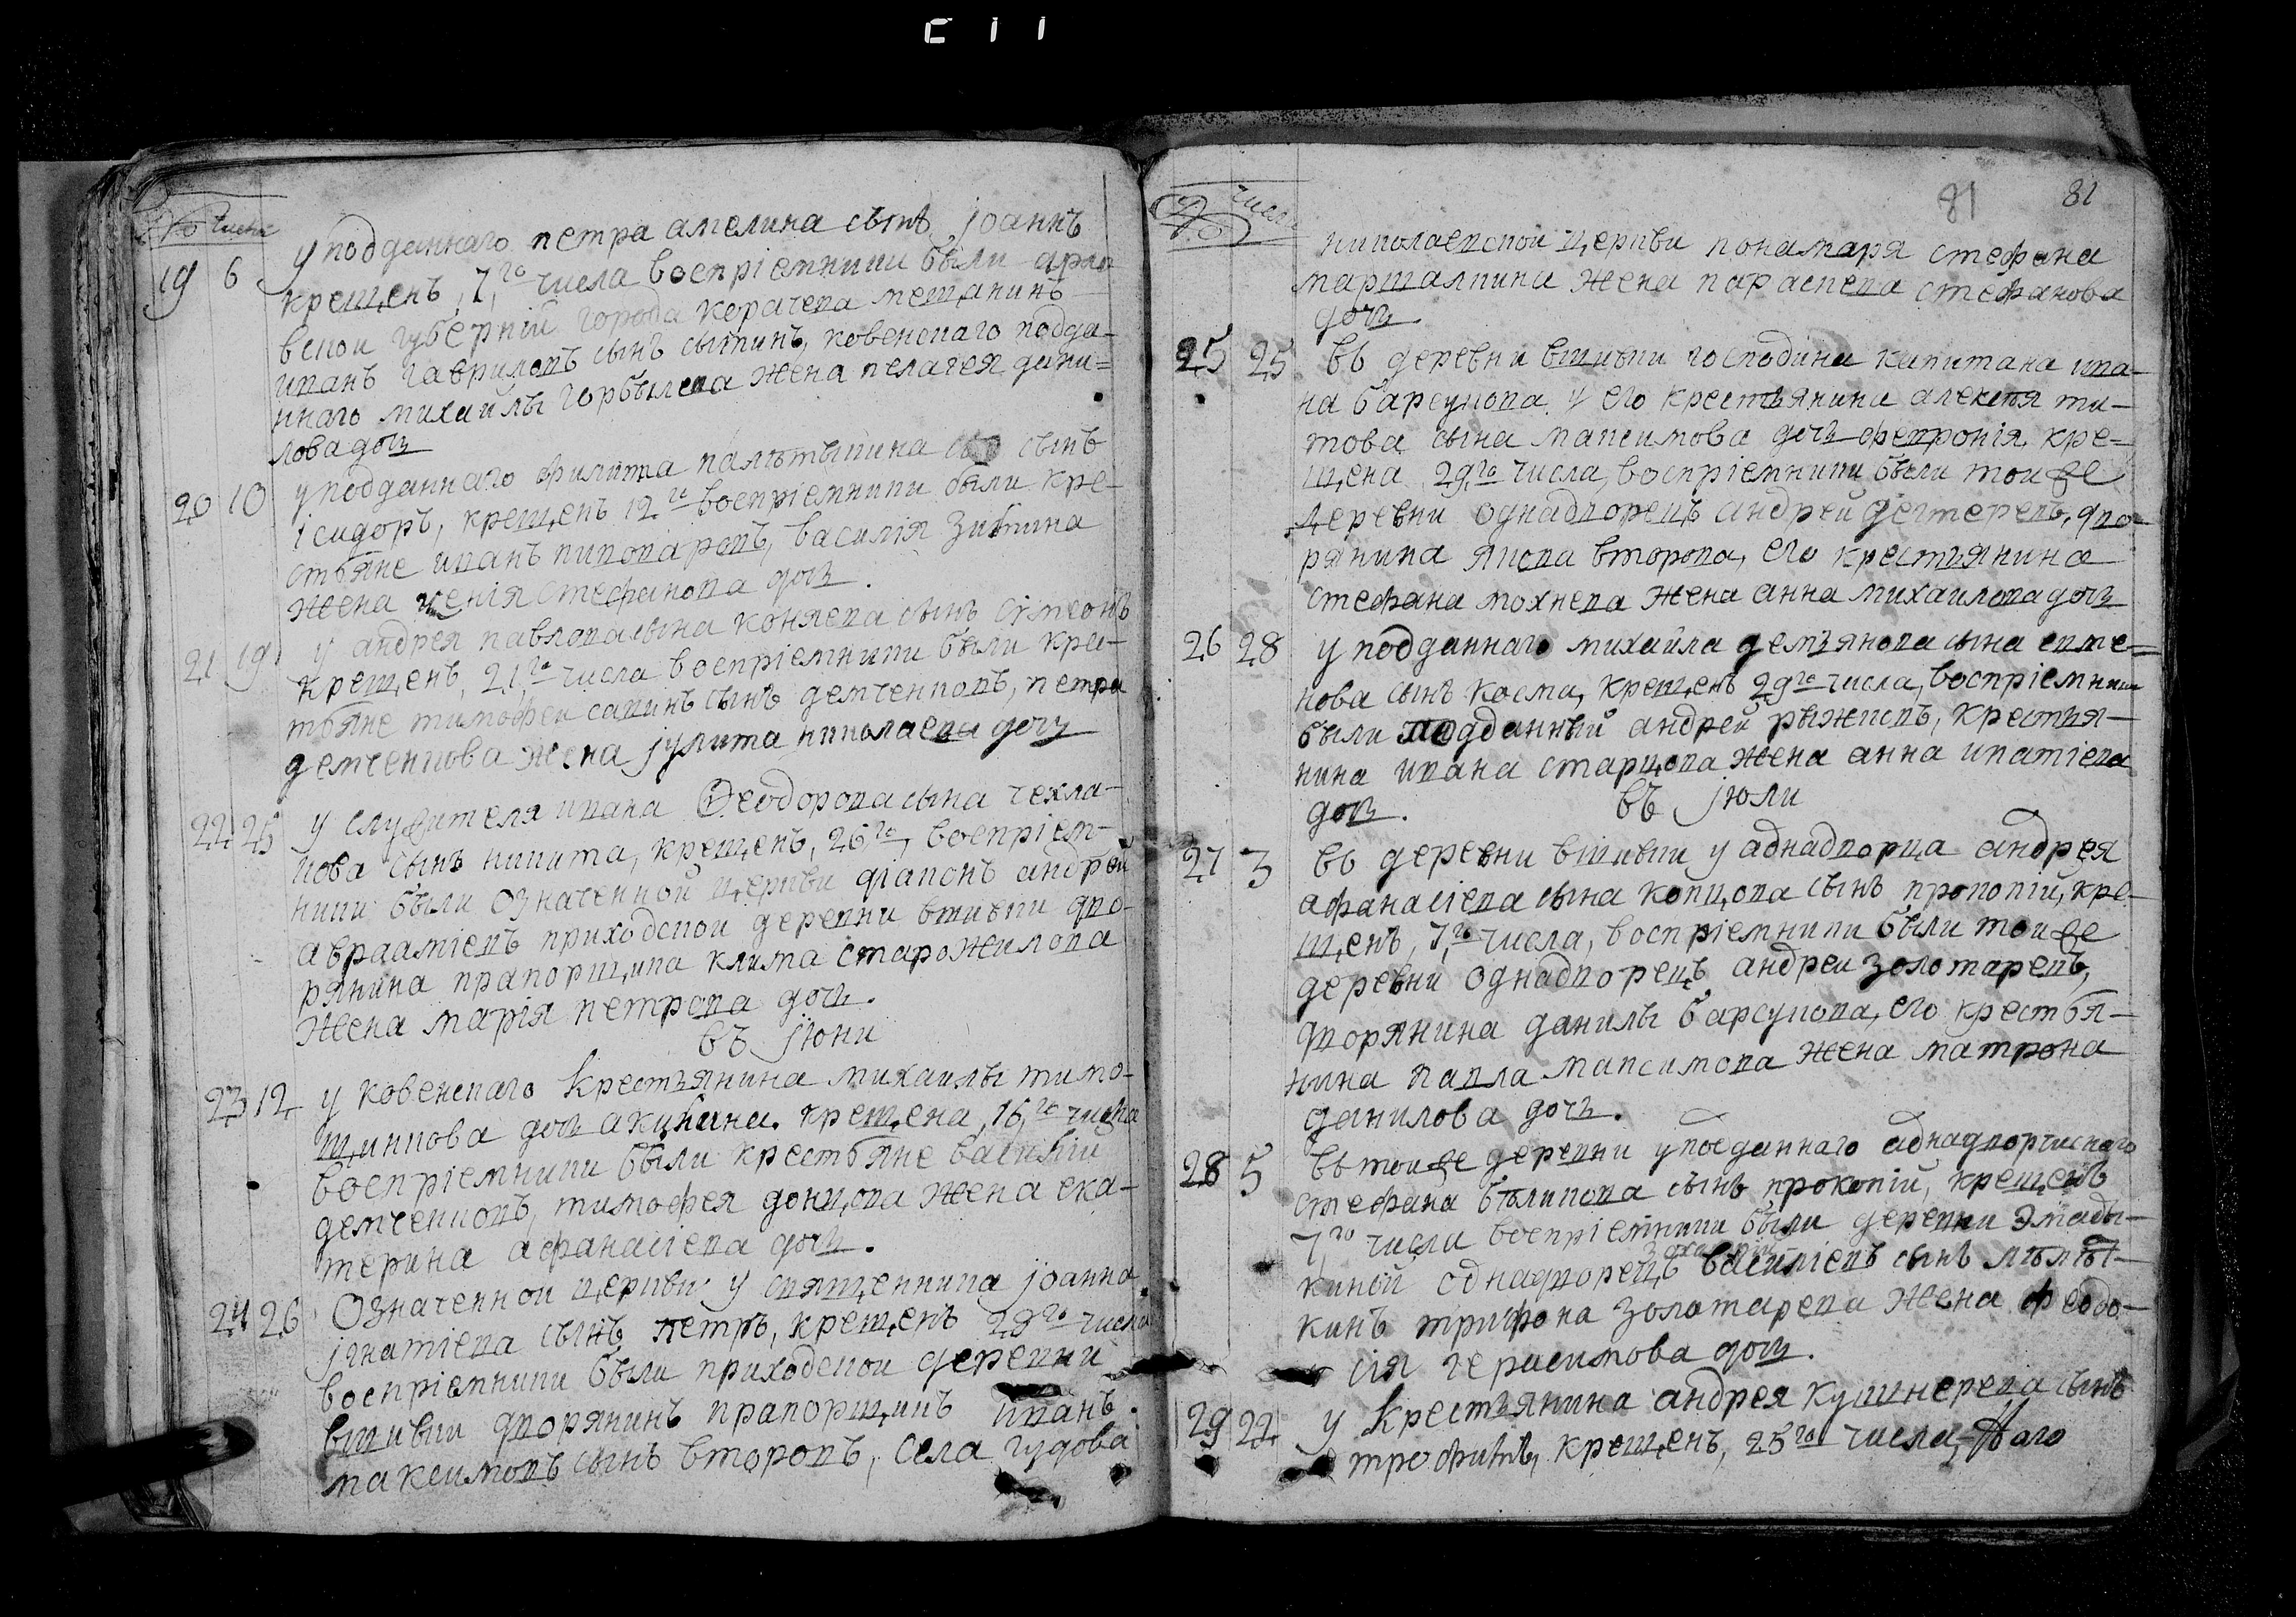 № числа
19 6 у подданнаго петра амелина сынъ іоаннъ
крещенъ, 7,го числа воспріемники были орло
вской губерній города Корачева мещанинъ
иванъ гавриловъ сынъ сыпинъ, ковенскаго подда-
ннаго михайлы горбылева жена пелагея дани=
лова дочь
20 10 у подданнаго филипа сынъ
ісидоръ, крещенъ 12го воспріемники были кре-
стьяне иванъ василія
жена стефанова дочь.
21 19 у андрея павлова сына коняева сынъ сімеонъ
крещенъ, 21,го числа воспріемники были крес-
тьяне тимофеи савинъ сынъ демченковъ, петра
демченкова жена іулита николаева дочь
22 25 у служителя ивана Феодорова сына чехла-
кова сынъ никита, крещенъ, 26го, воспріем-
ники были означенной церкви діаконъ андрей
авраамієвъ приходской деревни вшивки дво-
рянина прапорщика клима старожилова
жена марія петрова дочь.
въ іюни
23 12 у ковенскаго крестьянина михаилы тимо-
щинкова дочь акулина. крещена, 16,го числа
воспріемники были крестьяне василій
демченковъ, тимофея донцова жена ека-
терина афанасіева дочь.
24 26 Означенной церкви у священника іоанна
ігнатіева сынъ петръ, крещенъ 29го числа
воспріемники были приходской деревни
вшивки дворянинъ прапорщикъ иванъ
максимовъ сынъ второвъ, села гудова
81 81
№ числа
николаевской церкви понамаря стефана
маршалкина жена параскева стефанова
дочь
25 25 въ деревни вшивки господина капитана ива-
на барсукова у его крестьянина алексея ти-
това сына максимова дочь февронія кре=
щена 29,го числа, воспріемники были тои же
деревни однадворецъ андрей дегтеревъ, дво-
рянина якова второва, его крестьянина
стефана мохнева жена анна михаилова дочь
26 28 у подданнаго михаила демьянова сына евте=
нова сынъ косма, крещенъ 29го числа, воспріемники
были подданный андрей рыжковъ, крестья-
нина ивана старцова жена анна ипатіева
дочь. въ іюли
27 3 въ деревни вшивки у аднадворца андрея
афанасіева сына копцова сынъ прокопій, кре-
щенъ, 7,го числа, воспріемники были тои же
деревни однадворецъ андреи золотаревъ,
дворянина данилы барсукова, его крестья-
нина павла максимова жена матрона
данилова дочь.
28 5 въ тои же деревни у поеданнаго аднадворческаго
стефана беликова сынъ прокопій, крещенъ
7,го числа воспріемники были деревни
киной однадворецъ василіевъ сынъ
кинъ трифона золотарева жена феодо-
сія герасимова дочь.
29 22 у крестьянина андрея кушнерева сынъ
трофимъ, крещенъ, 25го числа,